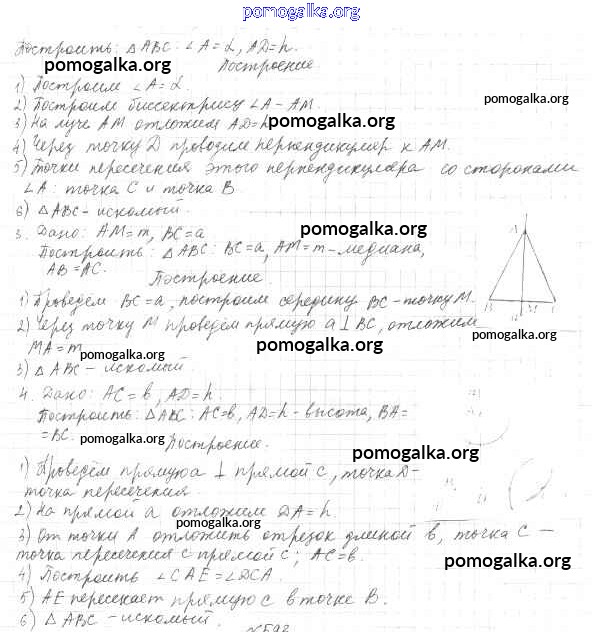 pomogalka.org
Построить: △ABC: ∠A=α, AD=h.
pomogalka.org pomogalka.org
Построение
1) Построим ∠A=α.
pomogalka.org
2) Построим биссектрису ∠A - AM.
3) На луче AM отложим AD=h pomogalka.org
4) Через точку D проводим перпендикуляр к AM.
5) Точки пересечения этого перпендикуляра со сторонами
∠A: точка C и точка B.
6) △ABC - искомый.
pomogalka.org
3. Дано: AM=m, BC=a
Построить: △ABC: BC=a, AM=m - медиана,
AB=AC.
Построение.
1) Проведём BC=a, построим середину BC - точку M.
2) Через точку M проведём прямую a⊥BC, отложим
MA=m
pomogalka.org pomogalka.org
3) △ABC - искомый
4. Дано: AC=b, AD=h.
Построить: △ABC: AC=b, AD=h - высота, BA=
=BC.
pomogalka.org
Построение.
pomogalka.org
1) Проведём прямую a ⊥ прямой c, точка D -
точка пересечения.
2) На прямой a отложим DA=h.
pomogalka.org
3) От точки A отложить отрезок длиной b, точка C -
точка пересечения с прямой c; AC=b.
pomogalka.org
4) Построить ∠CAE=∠DCA.
5) AE пересекает прямую c в точке B.
pomogalka.org
6) △ABC - искомый.